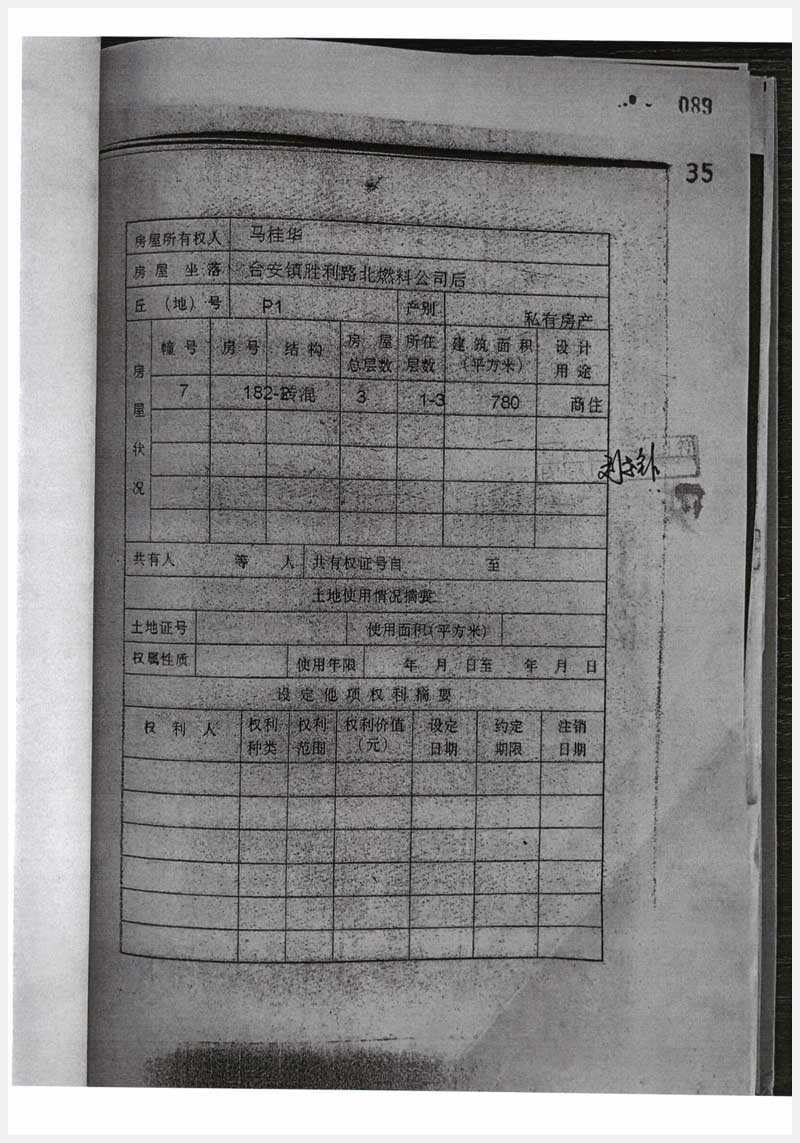 089
35
房屋所有权人 马桂华
房屋坐落 台安镇胜利路北燃料公司后
丘（地）号 P1 产别 私有房产
房屋状况
幢号 房号 结构 房屋总层数 所在层数 建筑面积（平方米） 设计用途
7 182-2 砖混 3 1-3 780 商住
共有人 等 人 共有权证号自 至
土地使用情况摘要
土地证号 使用面积（平方米）
权属性质 使用年限 年 月 日至 年 月 日
设定他项权利摘要
权利人 权利种类 权利范围 权利价值（元） 设定日期 约定期限 注销日期